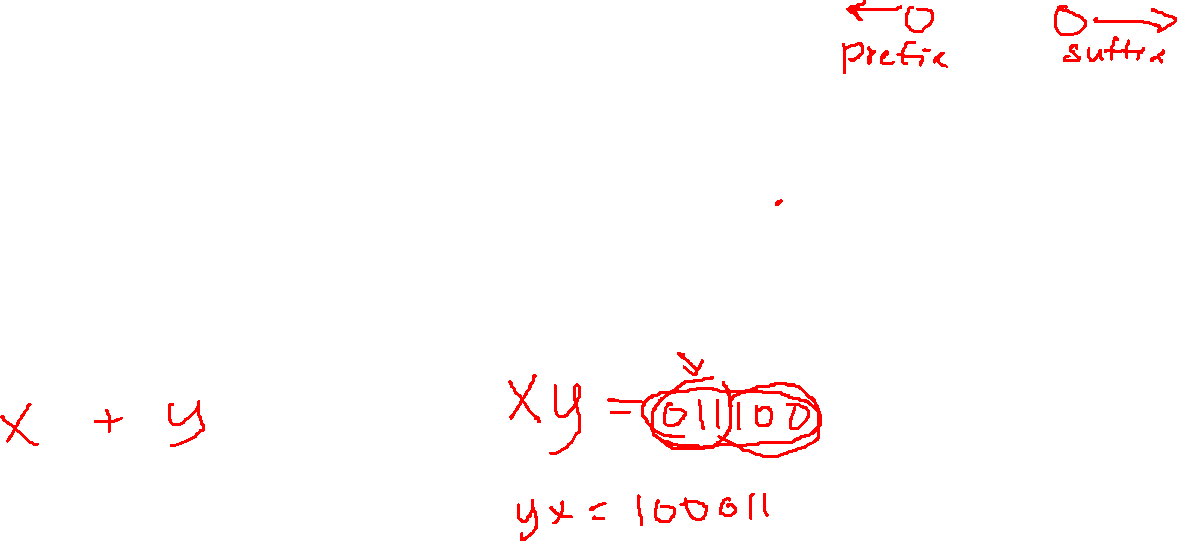 prefix suffix
x + y xy = 011100
yx = 100011